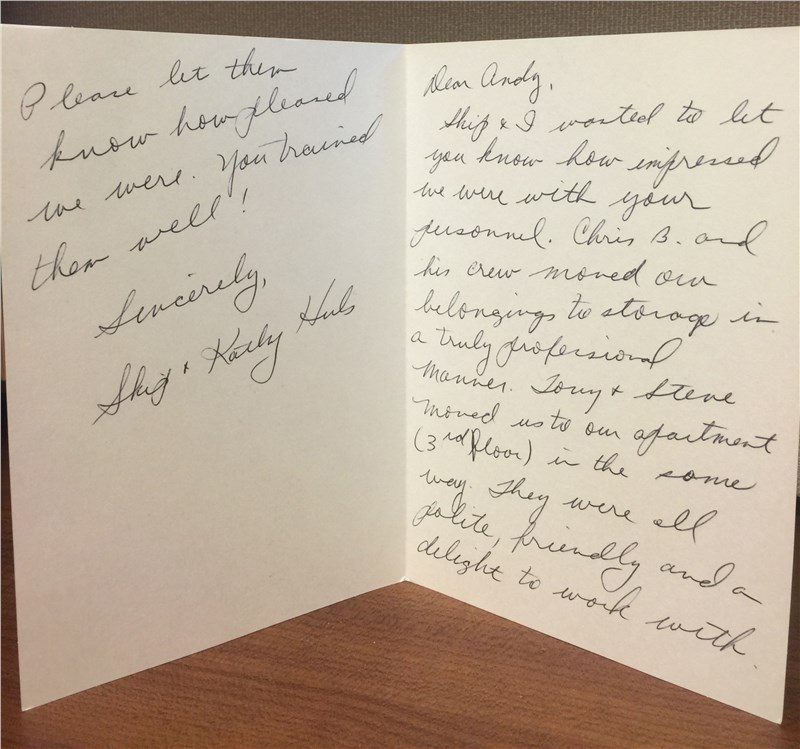 Dear Andy,
Skip & I wanted to let
you know how impressed
we were with your
personnel. Chris B. and
his crew moved our
belongings to storage in
a truly professional
manner. Tony & Steve
moved us to our apartment
(3rd floor) in the same
way. They were all
polite, friendly and a
delight to work with.
Please let them
know how pleased
we were. You trained
them well!
Sincerely,
Skip & Kathy Huls